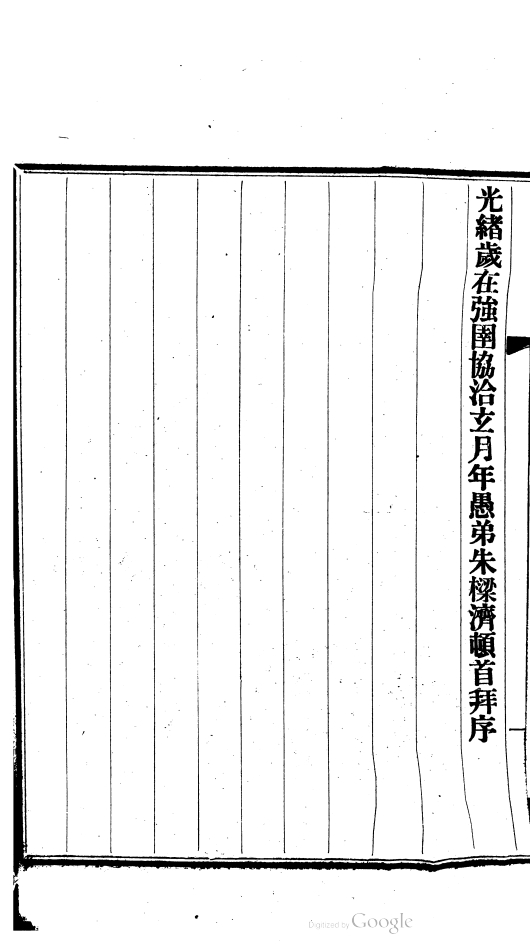 光緒歲在強圉協洽玄月年愚弟朱樑濟頓首拜序
Digitized by Google